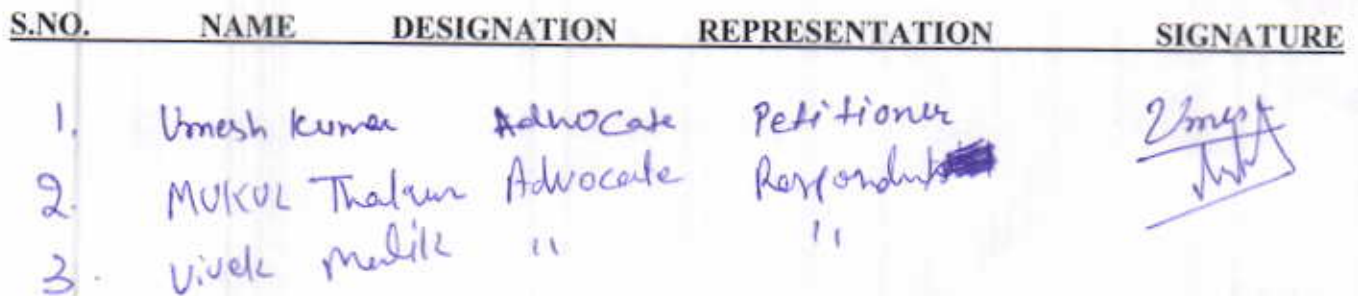 S.NO. NAME DESIGNATION REPRESENTATION SIGNATURE
1. Umesh Kumar Advocate Petitioner Umesh
2. MUKUL Thakur Advocate Respondent
3. Vivek Malik " "